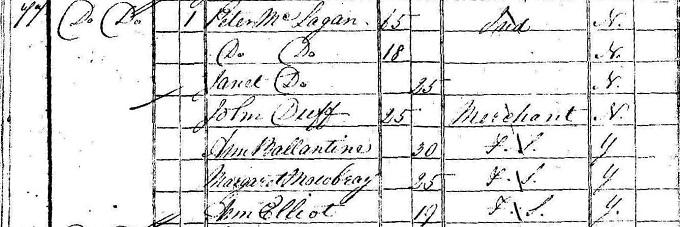 77 Do Do 1 Peter McLagan 65 N.
Do Do 18 N.
Janet Do 25 N.
John Duff 25 Merchant N.
Ann Ballantine 30 F. S. Y
Margaret Mowbray 25 F. S. Y
Ann Elliot 19 F. S. Y.